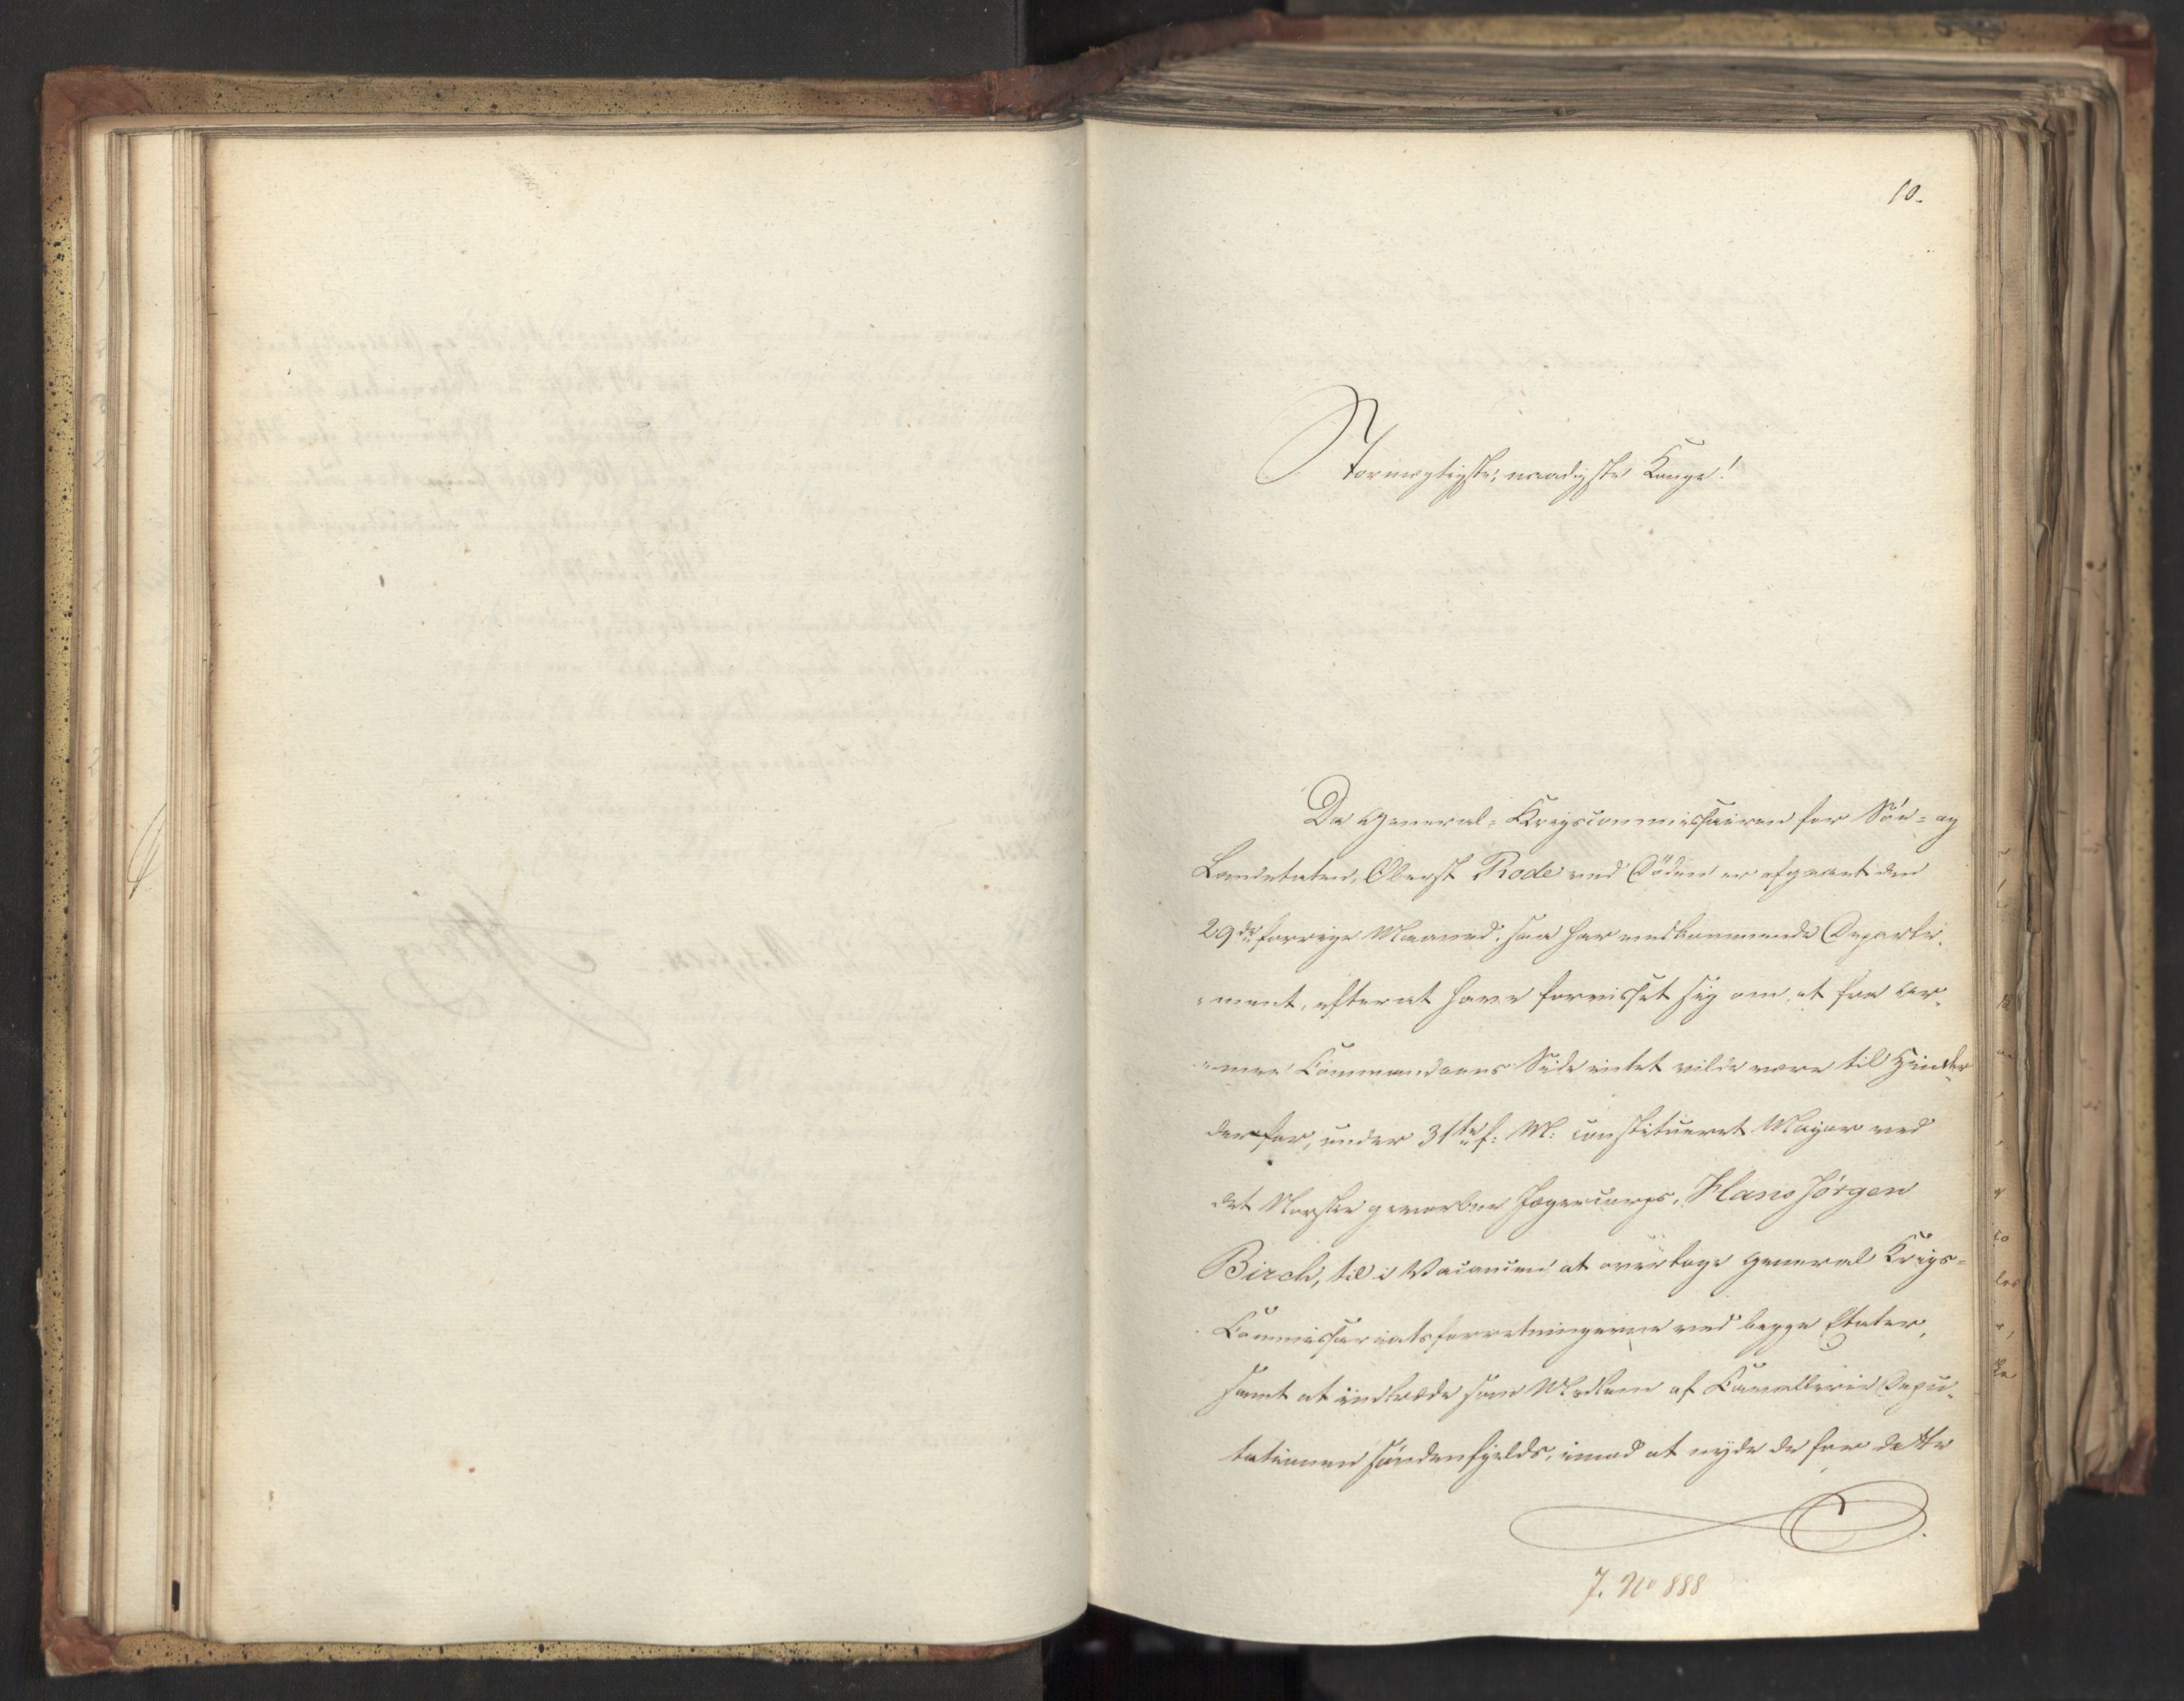 10.
Stormægtigste, naadigste Konge!
Da General-Krigscommissairen for Söe- og
Landetaten, Oberst Rode ved Döden er afgaaet den
29de forrige Maaned, saa har vedkommende Departe-
"ment, efter at have forvisset sig om, at fra Ar-
"mee Commandoens Side intet vilde være til Hinder
derfor, under 31te f: M: constitueret Major ved
det Norske gevorbne Jægercorps, Hans Jörgen
Birch, til i Vacancen at overtage General Krigs-
Commissariatsforretningerne ved begge Etater,
samt at indtræde som Medlem af Cavallerie Depu-
tationen söndenfjelds, imod at nyde de for dette
J. No 888